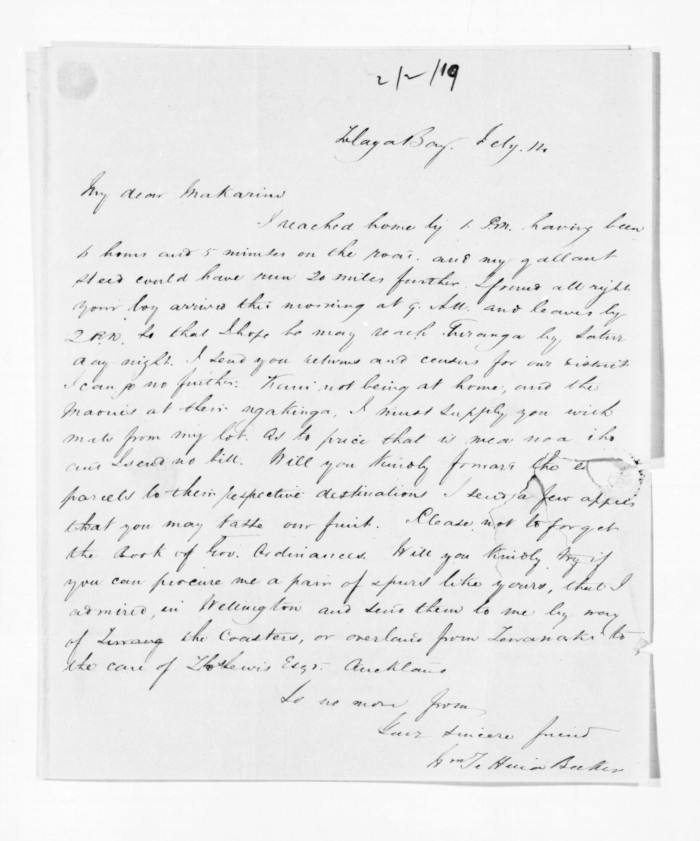 2/2/19
Tolaga Bay. July. 14
My dear Makarini
I reached home by 1. P.M. having been
6 hours and 5 minutes on the road. and my gallant
steed could have run 20 miles further. I found all right
your boy arrived this morning at 9. AM. and leaves by
2 P.M. so that I hope he may reach Turanga by Satur
day night. I send you returns and census for our District
I can go no further. not being at home, and the
Maories at their ngakinga, I must supply you with
mats from my lot. As to price that is mea noa iho
and I send no bill. Will you kindly forward the
parcels to their respective destinations I send a few apples
that you may taste our fruit. Please, not to forget
the Book of Gov. Ordinances. Will you kindly try if
you can procure me a pair of spurs like yours, that I
admired, in Wellington and send them to me by way
of the Coasters, or overland from Tarranaki to
the care of Thos Lewis Esqr. Auckland
So no more from
Your sincere friend
Wm Te Huia Baker